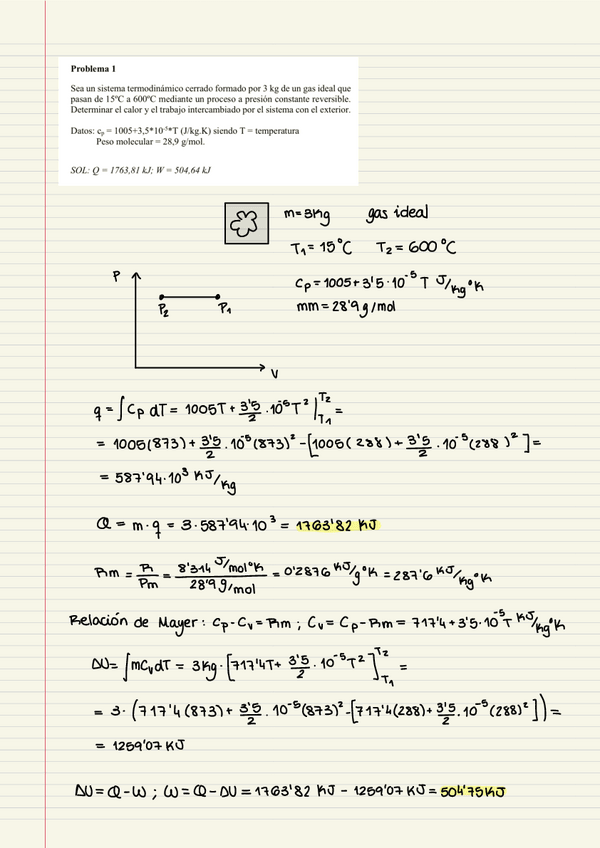 Problema 1
Sea un sistema termodinámico cerrado formado por 3 kg de un gas ideal que
pasan de 15ºC a 600ºC mediante un proceso a presión constante reversible.
Determinar el calor y el trabajo intercambiado por el sistema con el exterior.
Datos: cₚ = 1005+3,5*10⁻⁵*T (J/kg.K) siendo T = temperatura
Peso molecular = 28,9 g/mol.
SOL: Q = 1763,81 kJ; W = 504,64 kJ
m = 3Kg gas ideal
T₁ = 15°C T₂ = 600°C
Cp = 1005 + 3'5·10⁻⁵ T J/Kg°K
mm = 28'9 g/mol
P
P₂ P₁
V
q = ∫Cp dT = 1005T + 3'5/2 · 10⁻⁵T² |T₂ T₁ =
= 1005(873) + 3'5/2 · 10⁻⁵(873)² - [1005(288) + 3'5/2 · 10⁻⁵(288)²] =
= 587'94·10³ KJ/Kg
Q = m·q = 3·587'94·10³ = 1763'82 KJ
Rm = R/Pm = 8'314 J/mol°K / 28'9 g/mol = 0'2876 KJ/g°K = 287'6 KJ/Kg°K
Relación de Mayer: Cp - Cv = Rm ; Cv = Cp - Rm = 717'4 + 3'5·10⁻⁵T KJ/Kg°K
ΔU = ∫mCvdT = 3Kg·[717'4T + 3'5/2 · 10⁻⁵T²]T₂ T₁ =
= 3·(717'4(873) + 3'5/2 · 10⁻⁵(873)² - [717'4(288) + 3'5/2 · 10⁻⁵(288)²]) =
= 1259'07 KJ
ΔU = Q - W ; W = Q - ΔU = 1763'82 KJ - 1259'07 KJ = 504'75 KJ